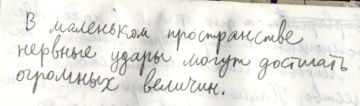 В маленьком пространстве
нервные удары могут достигать
огромных величин.